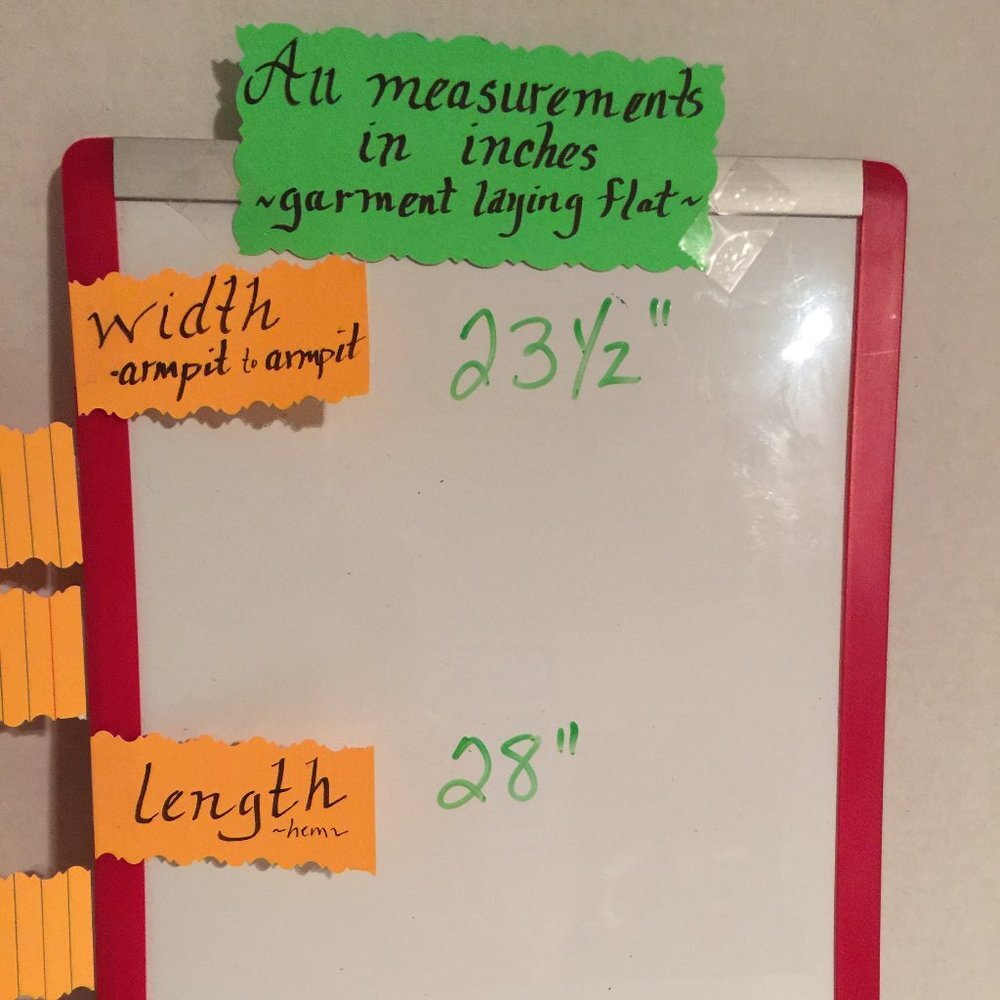 All measurements
in inches
~garment laying flat~
Width
-armpit to armpit
23 1/2"
length
~hem~
28"